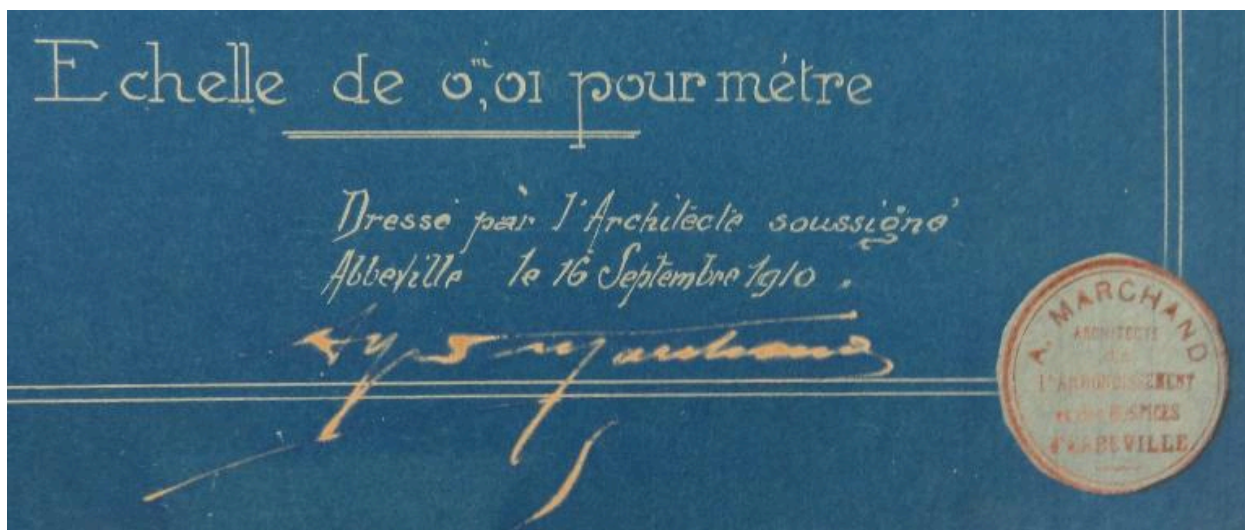 Echelle de 0,ᵐ01 pour métre
Dressé par l'Architecte soussigné
Abbeville le 16 Septembre 1910.
Marchand
A. MARCHAND
ARCHITECTE
de
l'ARRONDISSEMENT
et des HOSPICES
d'ABBEVILLE